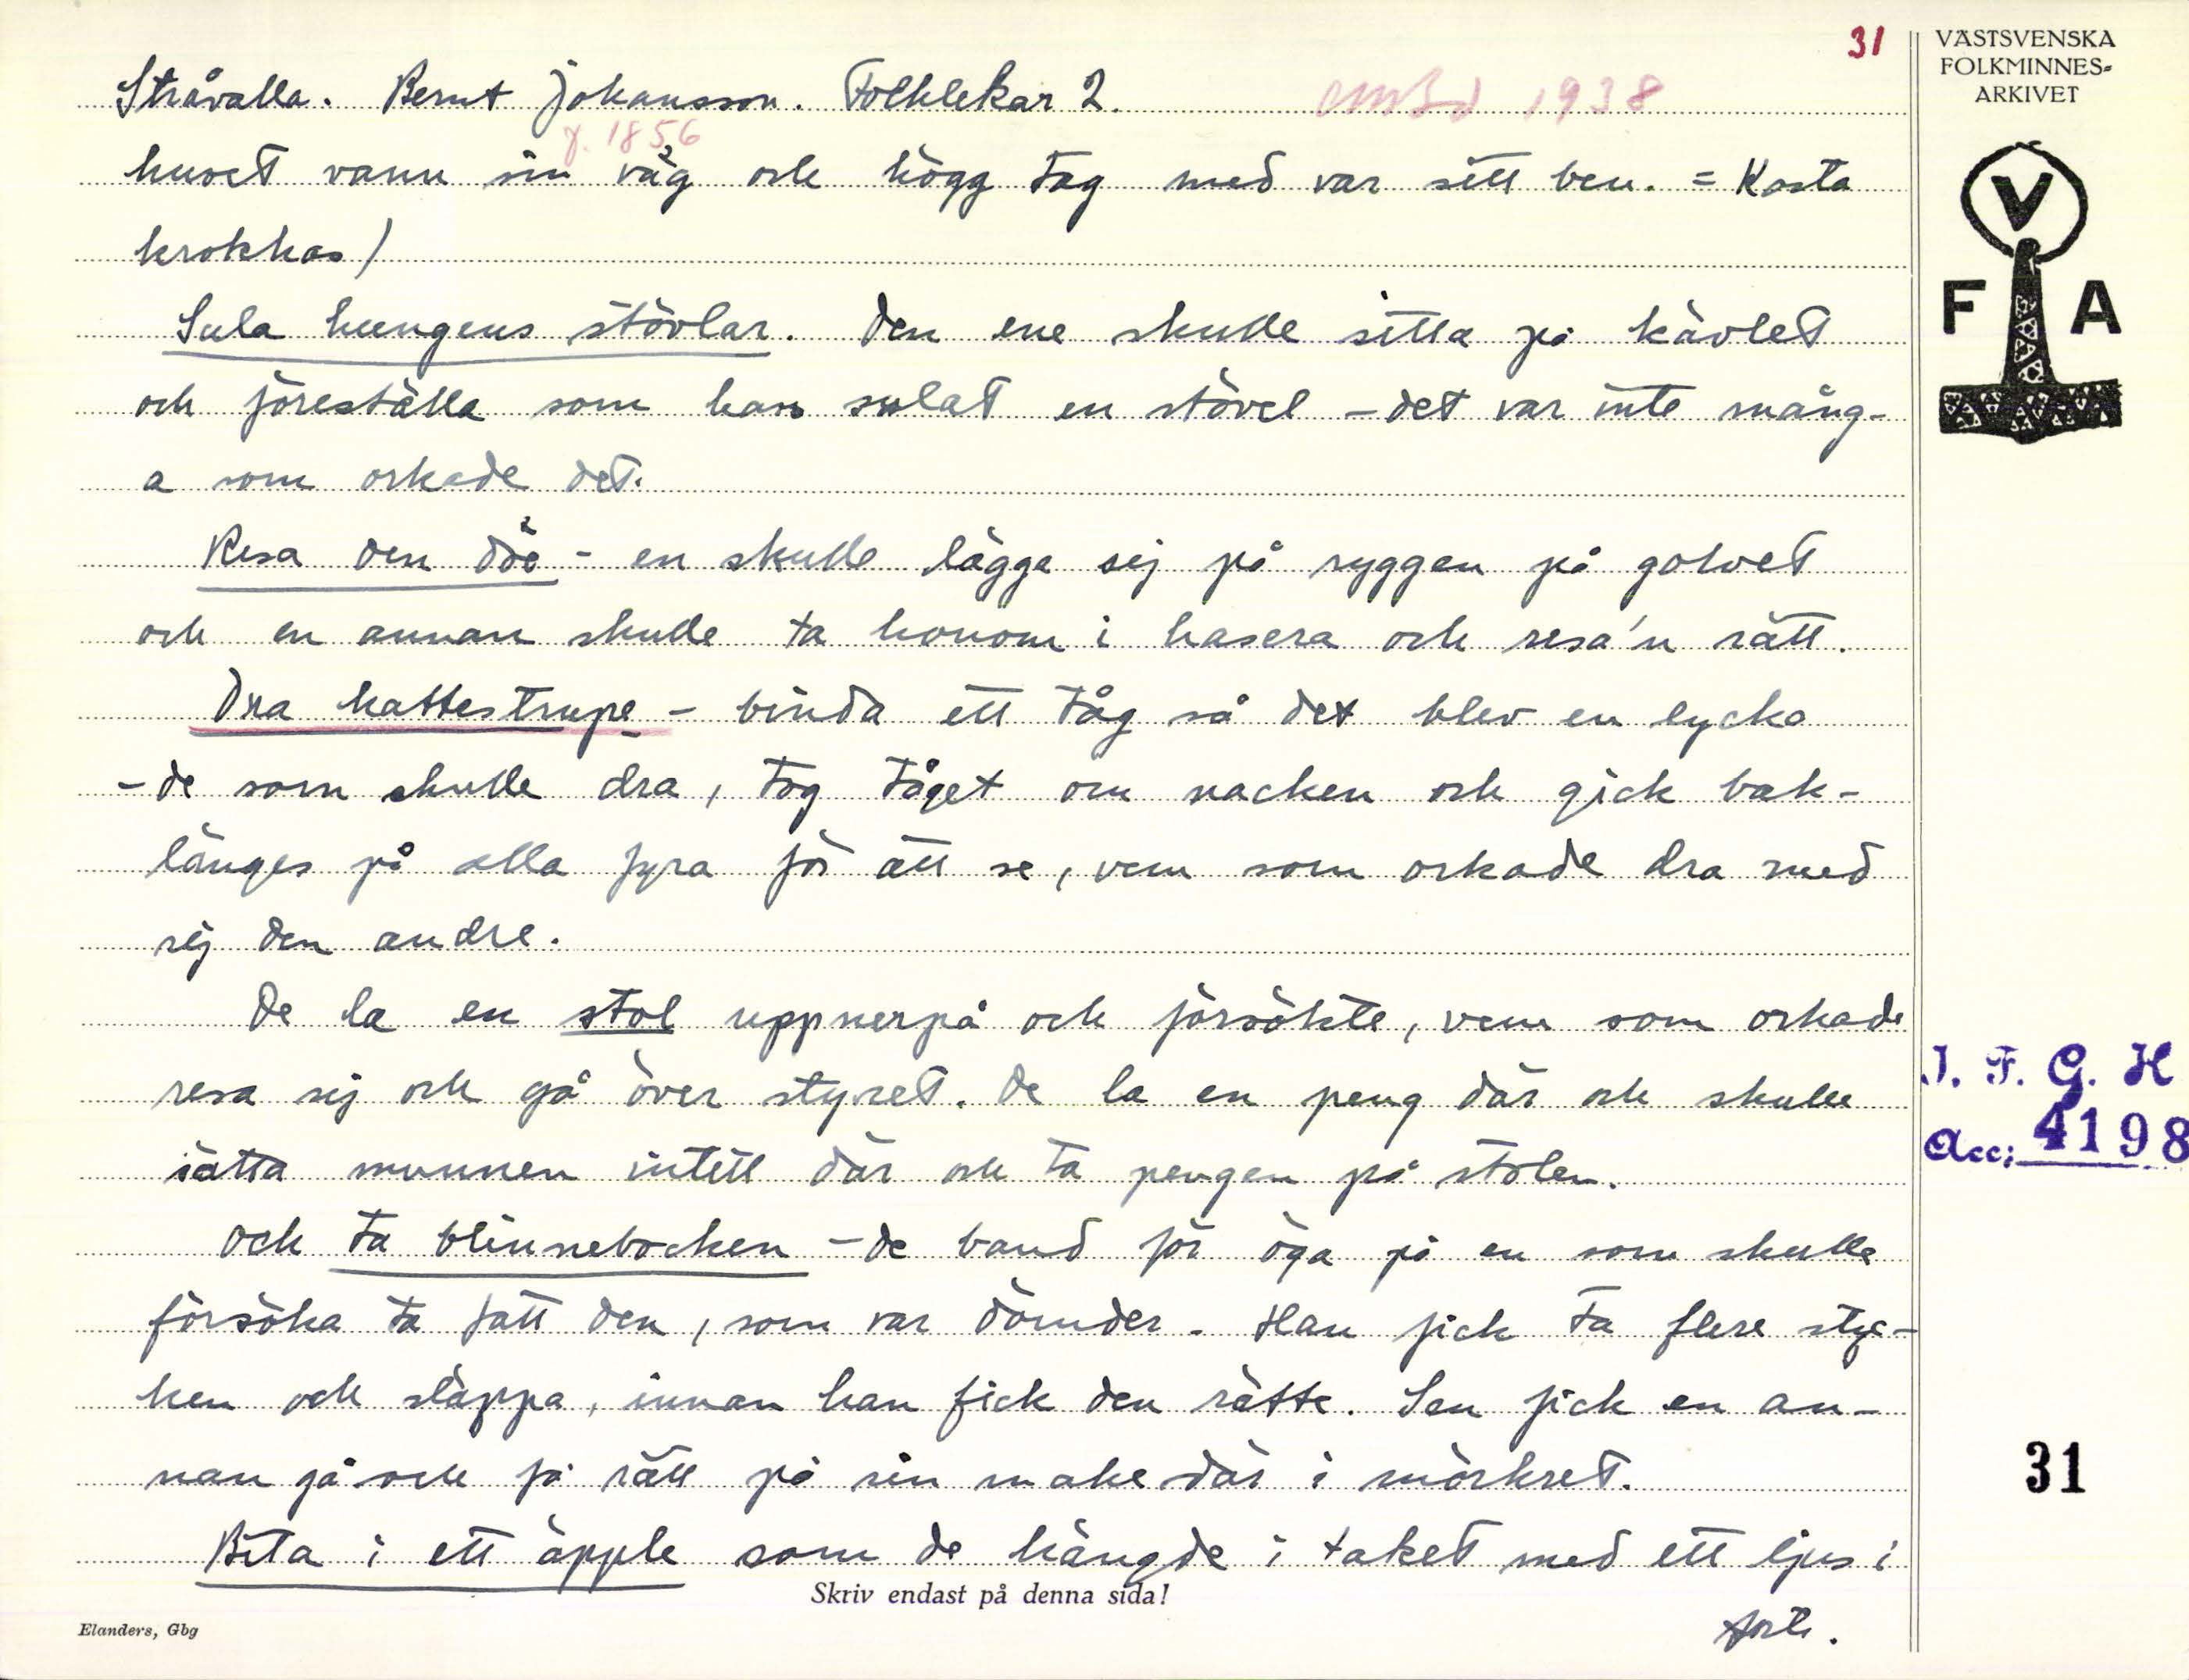 31
VÄSTSVENSKA
FOLKMINNES-
ARKIVET
Stråvalla. Bernt Johansson. Folklekar 2.
1938
f. 1856
huvet varnn sin väg och högg tag med var sitt ben. = Kasta
krokhas)
Sula kungens stövlar. Den ene skulle sitta på kävlet
och föreställa som han sulat en stövel - det var inte mång-
a som orkade det.
Resa den döe - en skulle lägga sej på ryggen på golvet
och en annan skulle ta honom i hasera och resa'n rätt.
Dra kattestrupe - binda ett tåg så det blev en lycka
- de som skulle dra, tog tåget om nacken och gick bak-
länges på alla fyra för att se, vem som orkade dra med
sej den andre.
De la en stol uppnerpå och försökte, vem som orkade
resa sej och gå över styret. De la en peng där och skulle
sätta munnen intill där och ta pengen på stolen.
Och ta blinnebocken - de band för öga på en som skulle
försöka ta fatt den, som var dömder. Han fick ta flere styc-
ken och släppa, innan han fick den rätte. Sen fick en an-
nan gå och få rätt på sin make där i mörkret.
Bita i ett äpple som de hängde i taket med ett ljus i
forts.
V
F A
I. F. G. H
Acc: 4198
31
Skriv endast på denna sida!
Elanders, Gbg